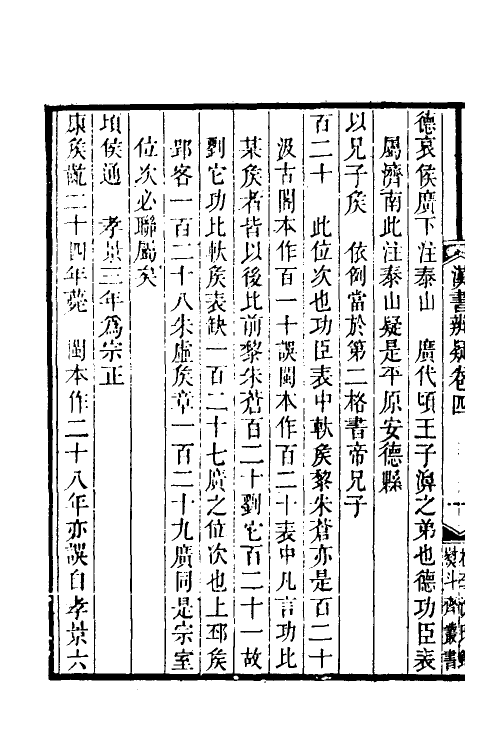 漢書辨疑卷四
德哀侯廣下注泰山　廣代頃王子濞之弟也德功臣表
屬濟南此注泰山疑是平原安德縣
以兄子矦　依例當於第二格書帝兄子
百二十　此位次也功臣表中軑矦黎朱蒼亦是百二十
汲古閣本作百一十誤閩本作百二十表中凡言功比
某矦者皆以後比前黎朱蒼百二十劉它百二十一故
劉它功比軑矦表缺一百二十七廣之位次也上邳矦
郢客一百二十八朱虛矦章一百二十九廣同是宗室
位次必聯屬矣
頃侯通　孝景三年爲宗正
康矦齮二十四年薨　閩本作二十八年亦誤自孝景六